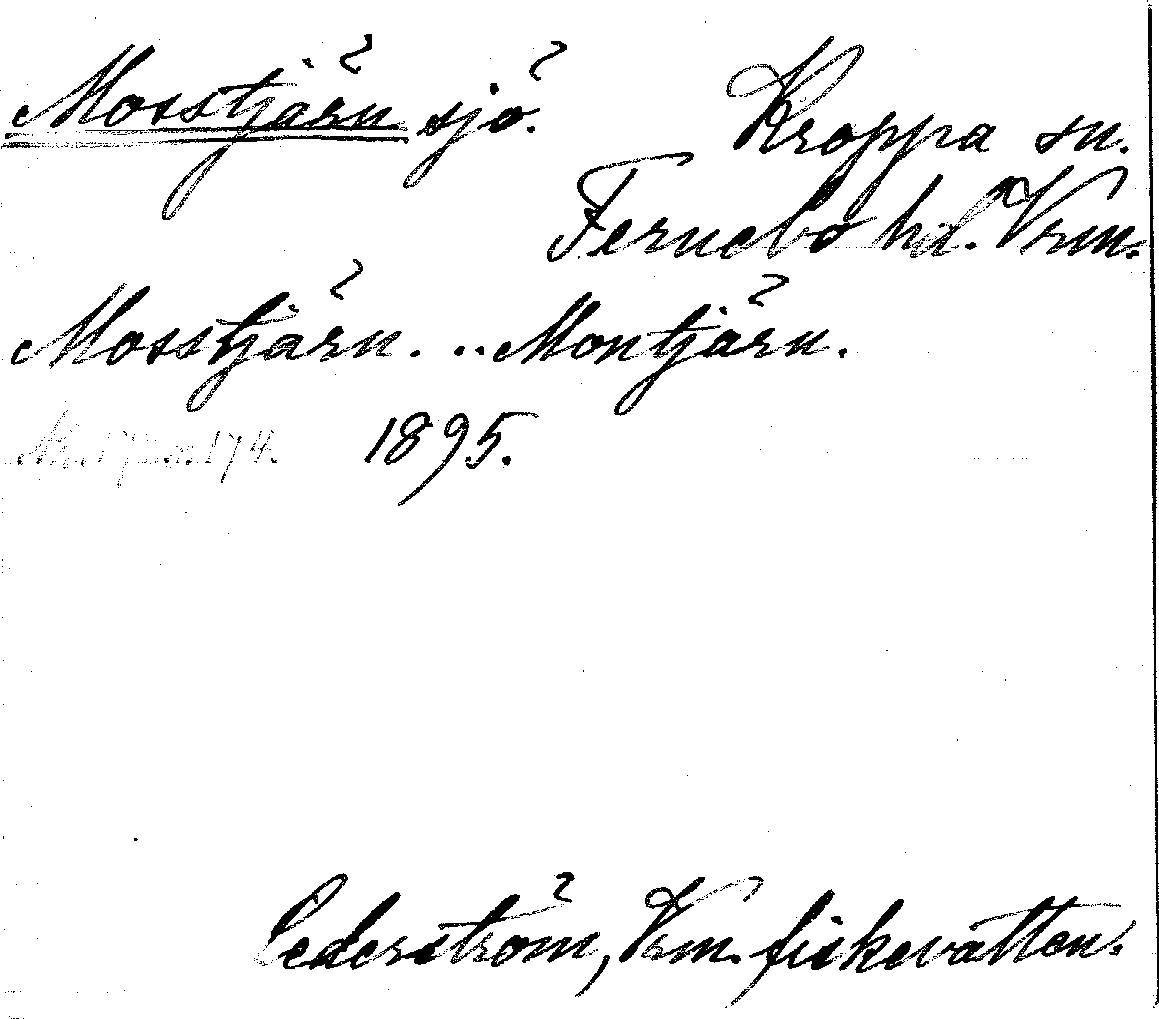 Mosstjärn sjö. Kroppa sn.
Fernebo hd. Vrm.
Mosstjärn. .. Montjärn.
1895.
Cederström, Vrm. fiskevatten.